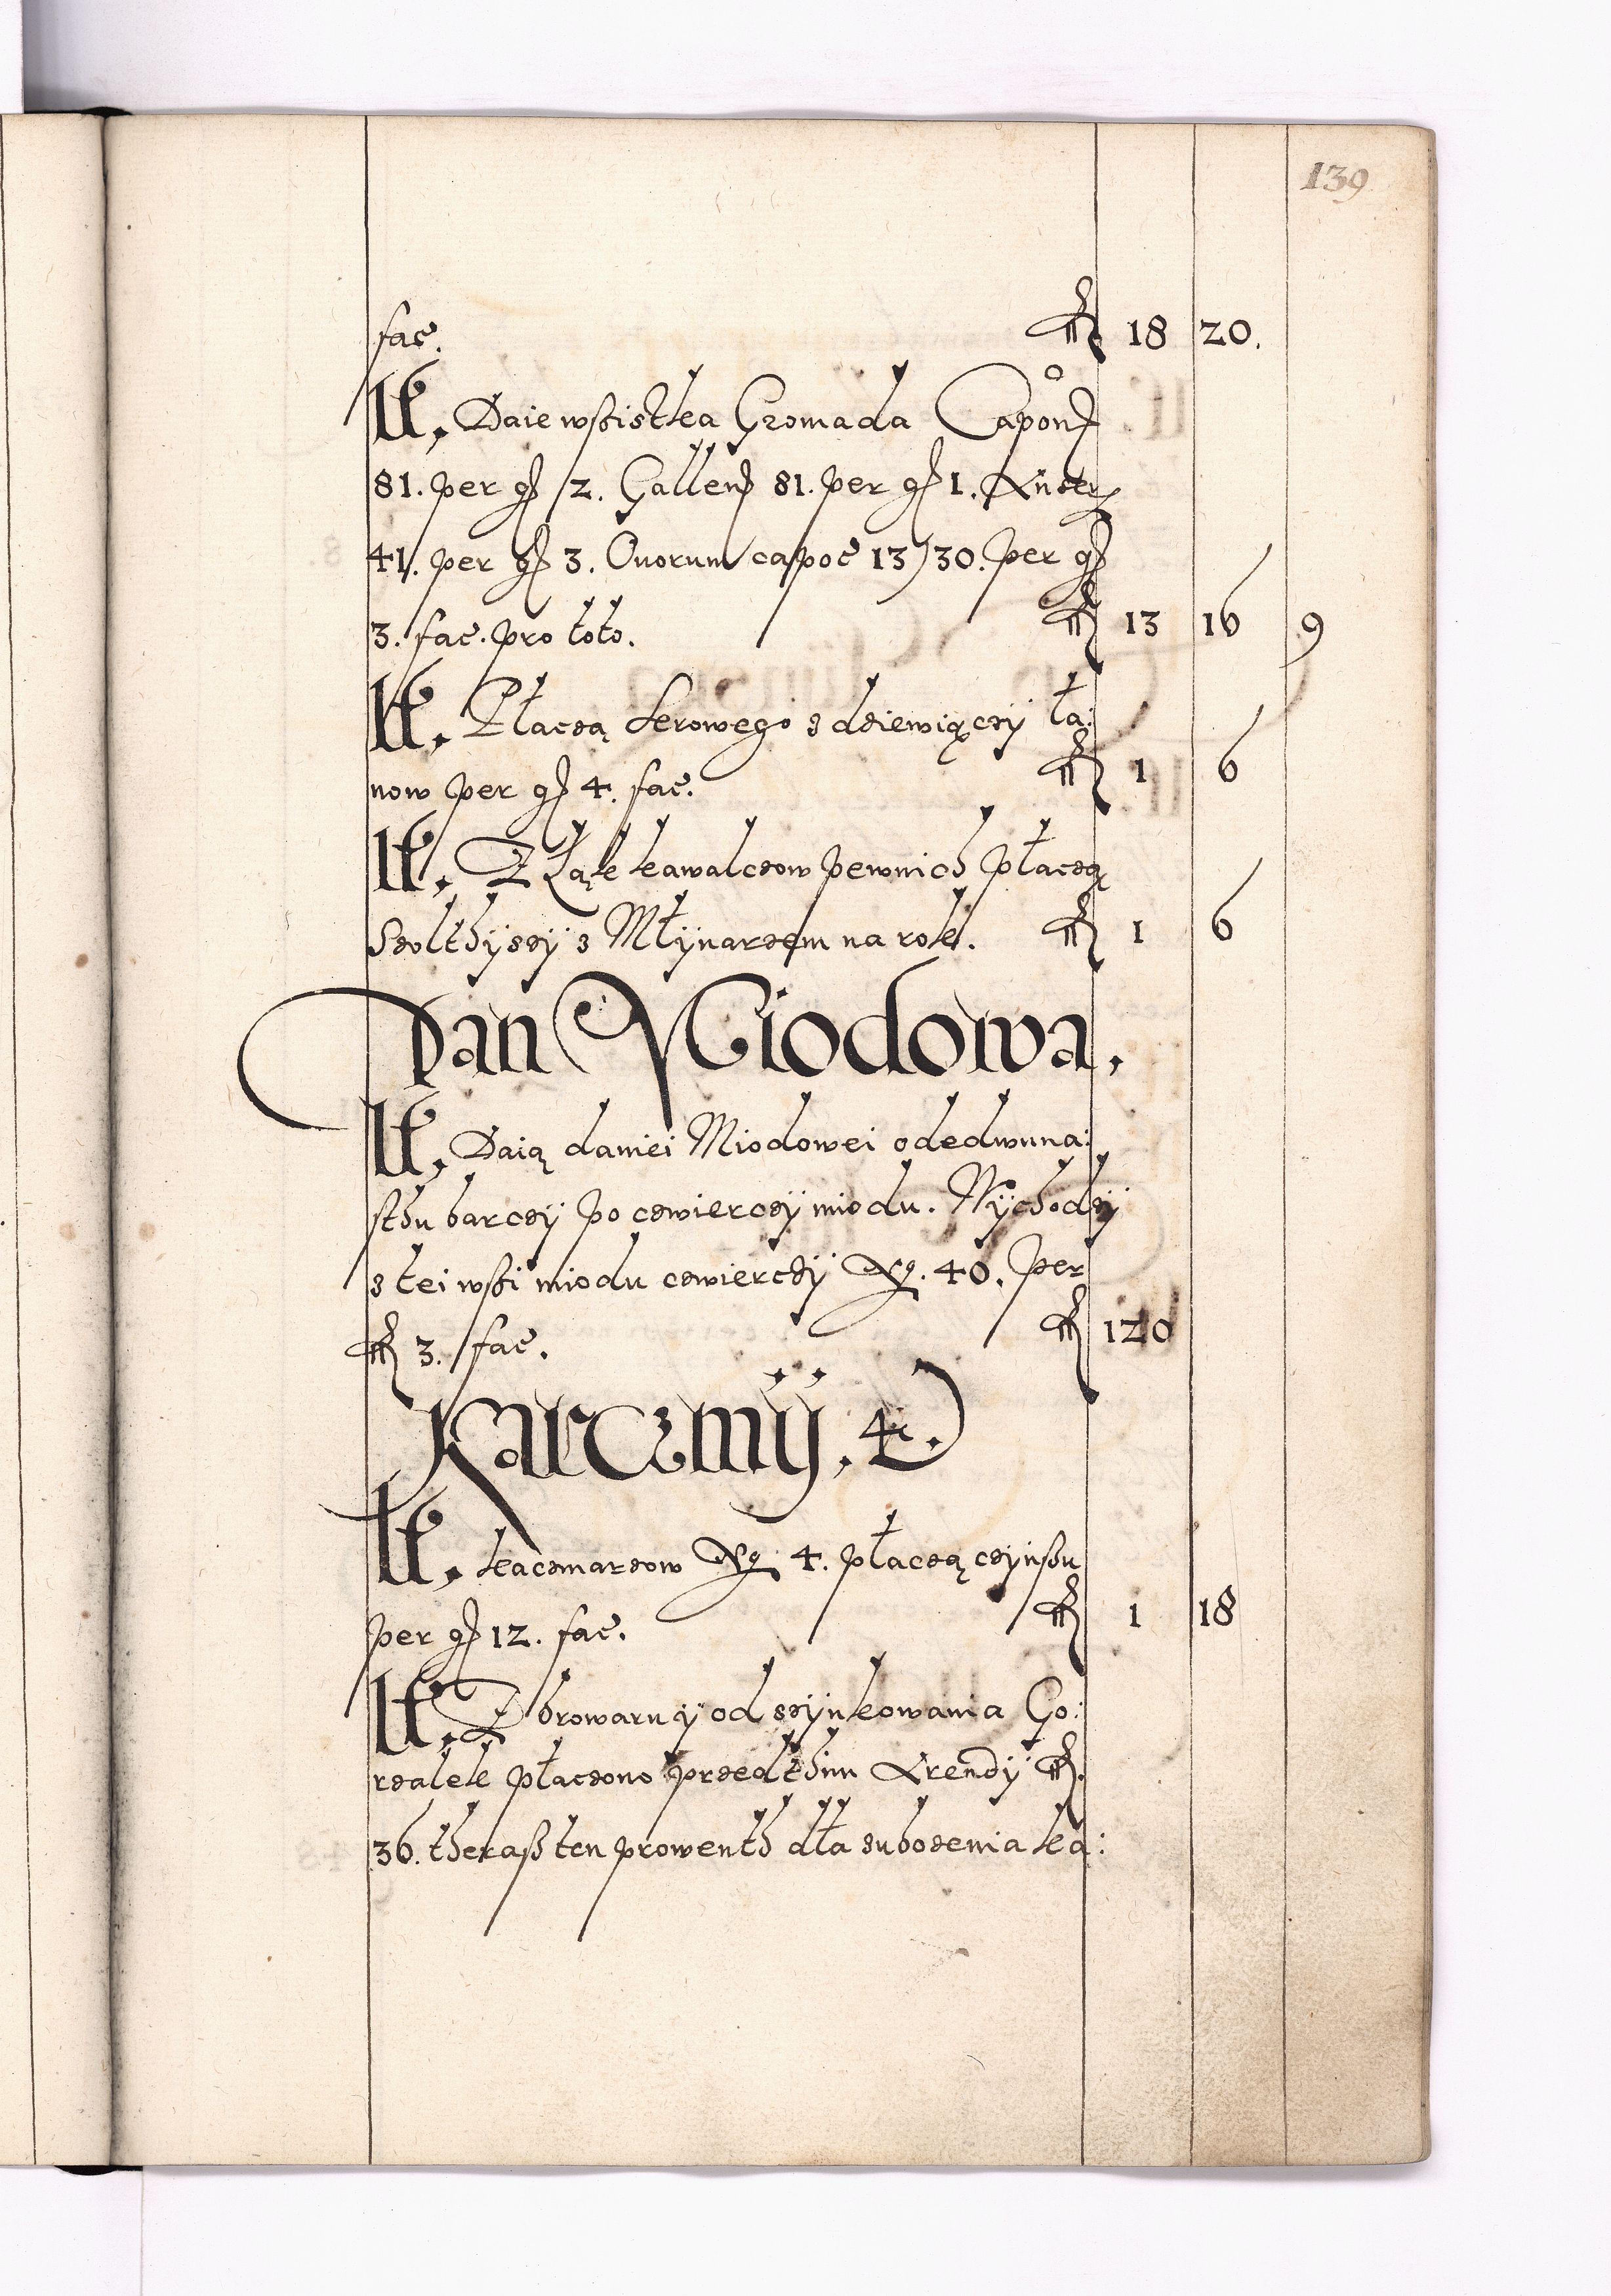 139
fac. fl 18 20.
It. Daie wßistka Gromada Capon
81. per gr 2. Gallen 81. per gr 1. Anser
41. per gr 3. Ouorum capoc 13/30. per gr
3. fac. pro toto. fl 13 16 9
It. Płaczą Serowego z dziewiączÿ ła:
now per gr 4. fac. fl 1 6
It. Z Łąk kawalczow pewnich płaczą
Szolthÿszÿ z Młÿnarzem na rok. fl 1 6
Dan Miodowa.
It. Daią daniei Miodowei ode dwuna:
sthu barczÿ po czwierczÿ miodu. Wÿchodzÿ
z tei wßi miodu czwierczÿ No. 40. per
fl 3. fac. fl 120
Karczmÿ. 4.
It. kaczmarzow No. 4. płaczą czÿnßu
per gr 12. fac. fl 1 18
It. Z browaru ÿ od szÿnkowania Go:
rzalki płaczono przed thim Arendÿ fl.
36. theraß ten prowenth dła zubozenia ka: